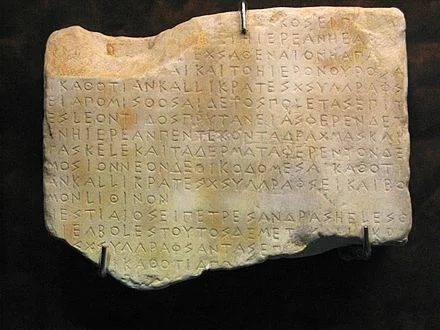 ΚΟΣΕΙΠ
ΗΙΕΡΕΑΝΗΕ
ΕΧΣΑΘΕΝΑΙΟΝΗΑΠΑ
ΑΙΚΑΙΤΟΗΙΕΡΟΝΘΥΡΟΣΑ
ΙΚΑΘΟΤΙΑΝΚΑΛΛΙΚΡΑΤΕΣΧΣΥΛΛΡΑΦΣ
ΕΙΑΠΟΜΙΣΘΟΣΑΙΔΕΤΟΣΠΟΛΕΤΑΣΕΠΙΤ
ΕΣΛΕΟΝΤΙΔΟΣΠΡΥΤΑΝΕΙΑΣΦΕΡΕΝΔΕΤ
ΕΝΗΙΕΡΕΑΝΠΕΝΤΕΚΟΝΤΑΔΡΑΧΜΑΣΚΑΙ
ΤΑΣΚΕΛΕΚΑΙΤΑΔΕΡΜΑΤΑΦΕΡΕΝΤΟΝΔΕ
ΜΟΣΙΟΝΝΕΟΝΔΕΟΙΚΟΔΟΜΕΣΑΙΚΑΘΟΤΙ
ΑΝΚΑΛΛΙΚΡΑΤΕΣΧΣΥΛΛΡΑΦΣΕΙΚΑΙΒΟ
ΜΟΝΛΙΘΙΝΟΝ
ΗΕΣΤΙΑΙΟΣΕΙΠΕΤΡΕΣΑΝΔΡΑΣΗΕΛΕΣΘ
ΑΙΕΛΒΟΛΕΣΤΟΥΤΟΣΔΕΜΕΤ
ΣΧΣΥΛΛΡΑΦΣΑΝΤΑΣΕΠ
ΕΙΚΑΘΟΤΙΑΠΟΜ